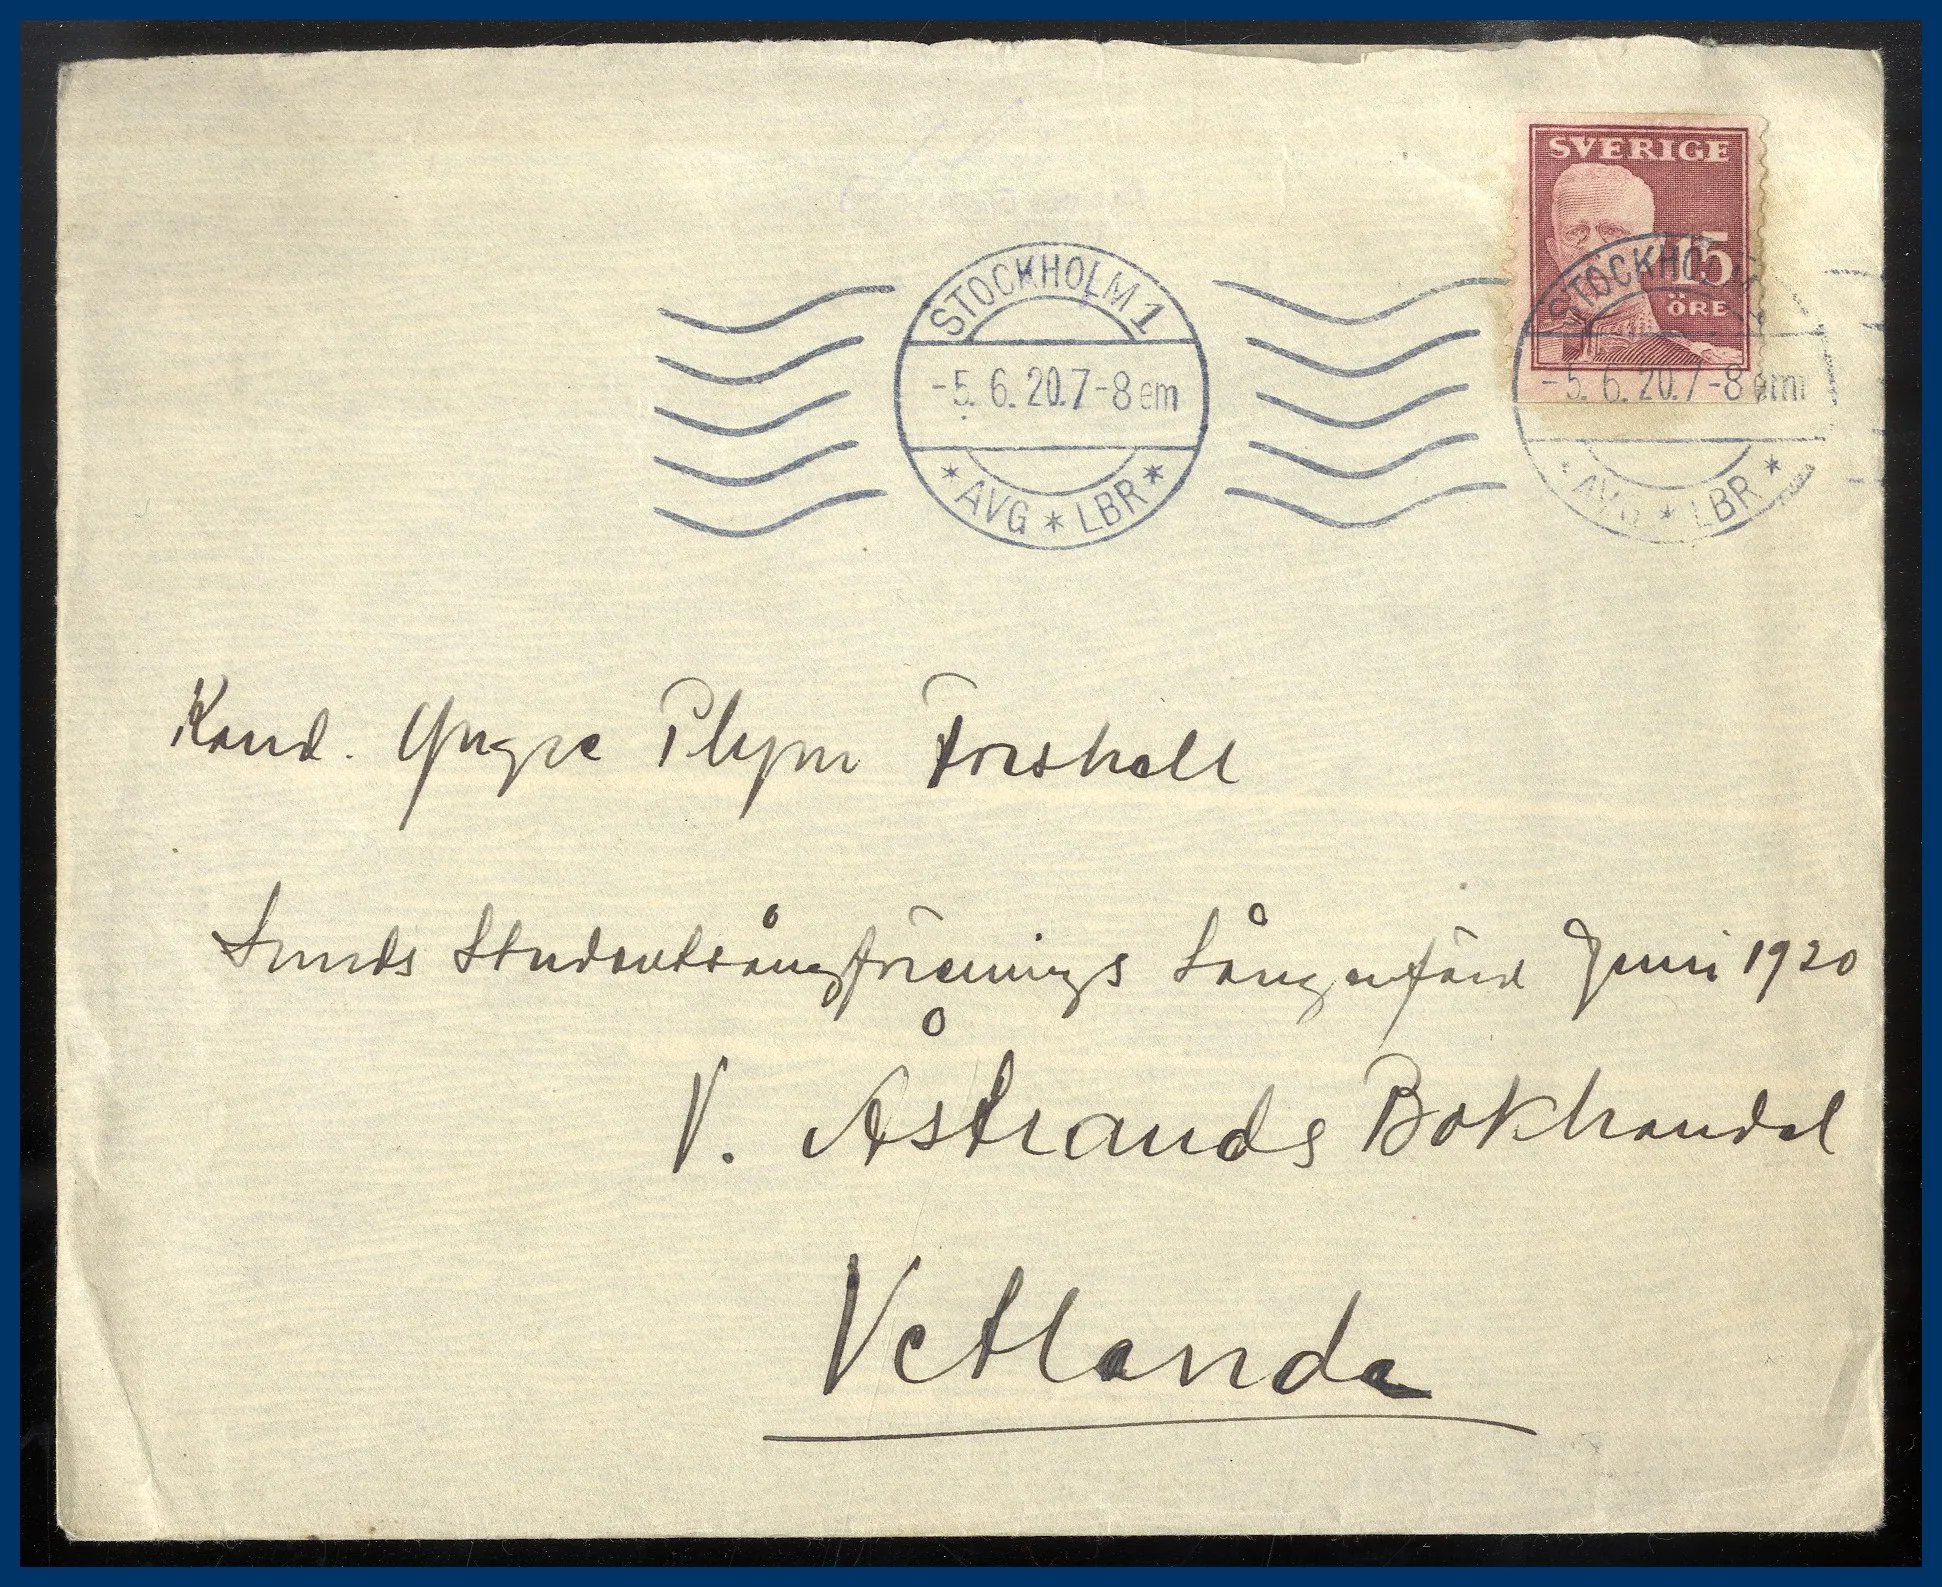 SVERIGE
15
ÖRE
STOCKHOLM 1
-5.6.20.7-8 em
* AVG * LBR *
STOCKHOLM
-5.6.20.7-8 em
* AVG * LBR *
Kand. Yngve Plym Forshell
Lunds Studentsångförenings Sångarfärd Juni 1920
V. Åstrands Bokhandel
Vetlanda